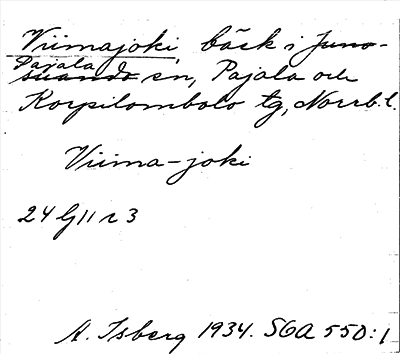 Viimajoki, bäck i Juno-
Pajala
suando sn, Pajala och
Korpilombolo tg, Norrb. l.
Viima-joki
24 G 11 r 3
A. Isberg 1934. SGA 550:1